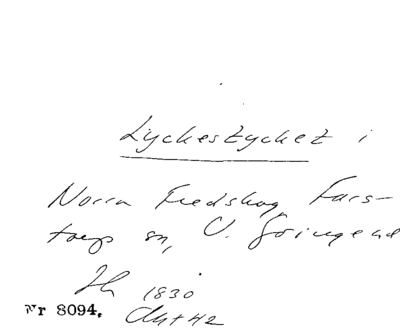 Lyckestycket i
Norra Fredskog, Fars-
torps sn, V. Göingehd
1830
Nr 8094.